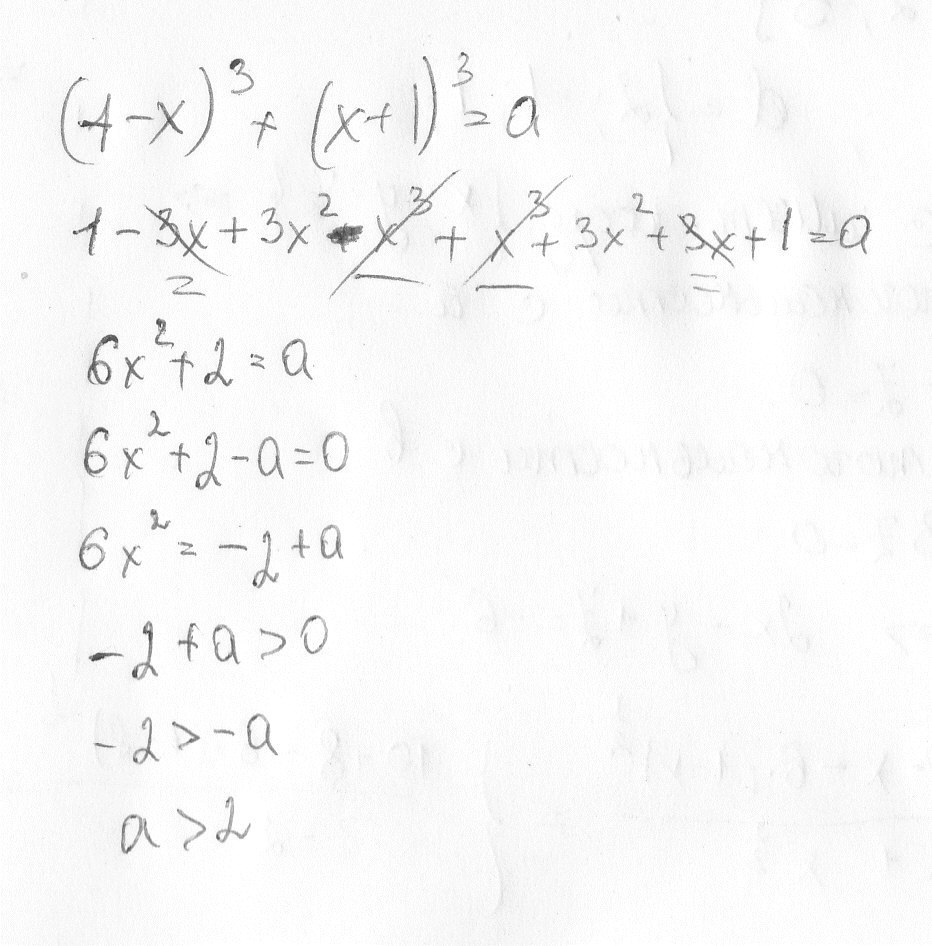 (1-x)³ + (x+1)³ = a
1 - 3x + 3x² - x³ + x³ + 3x² + 3x + 1 = a
6x² + 2 = a
6x² + 2 - a = 0
6x² = -2 + a
-2 + a > 0
-2 > -a
a > 2